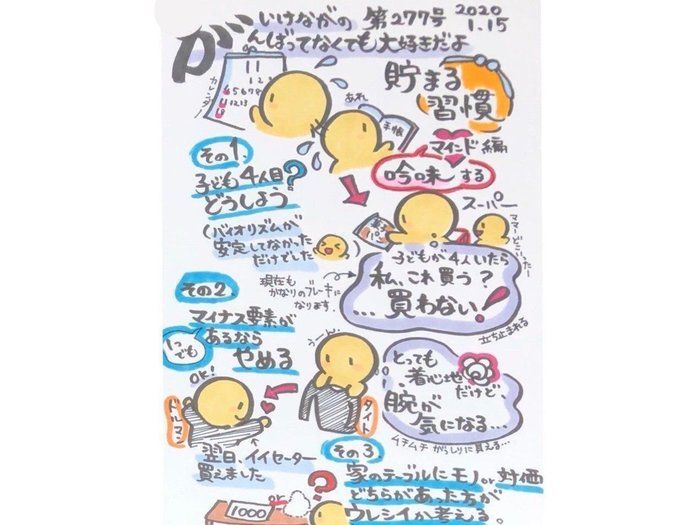 いけながの 第277号 2020 1.15
がんばってなくても大好きだよ
カレンダー
11
1 2
4 5 6 7 8
11 12 13
あれ
手帳
貯まる
習慣
マインド編
吟味する
その1
子ども4人目?
どうしよう
(バイオリズムが
安定してなかった
だけでした
スーパー
ママーどこいったー
子どもが4人いたら
私、これ買う?
…買わない!
立ち止まれる
現在も
かなりのブレーキに
なります。
その2
マイナス要素が
あるなら
やめる
いつでも
OK!
うーん…
ドルマン
タイト
とっても
着心地
だけど、
腕が
気になる…
ムチムチ がっしりに見える…
翌日、イイセーター
買えました
その3
家のテーブルにモノor対価
どちらがあった方が
ウレシイか考える。
1000
or
?